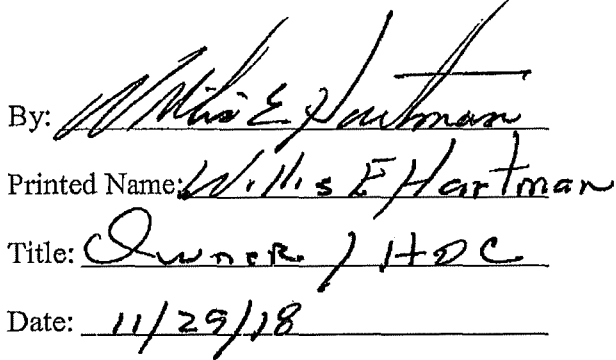 By: Willis E Hartman
Printed Name: Willis E Hartman
Title: Owner / HDC
Date: 11/29/18